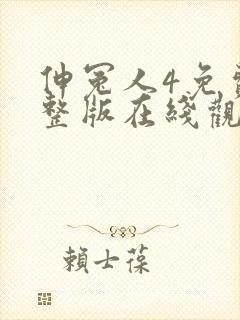 伸冤人4免費
整版在綫觀
賴士葆